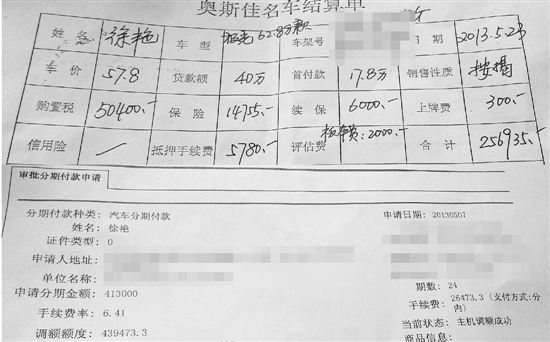 奥斯佳名车结算单
姓名 徐艳 车型 62.8万 车架号 日期 2013.5.23
车价 57.8 贷款额 40万 首付款 17.8万 销售性质 按揭
购置税 50400.- 保险 14755.- 续保 6000.- 上牌费 300.-
信用险 / 抵押手续费 5780.- 评估费 2000.- 合计 256935.-
审批分期付款申请
分期付款种类: 汽车分期付款 申请日期: 20130507
姓名: 徐艳
证件类型: 0
申请人地址:
单位名称:
期数: 24
申请分期金额: 413000
手续费: 26473.3 (支付方式:分
内)
手续费率: 6.41
当前状态: 主机调额成功
调额额度: 439473.3
商品信息: